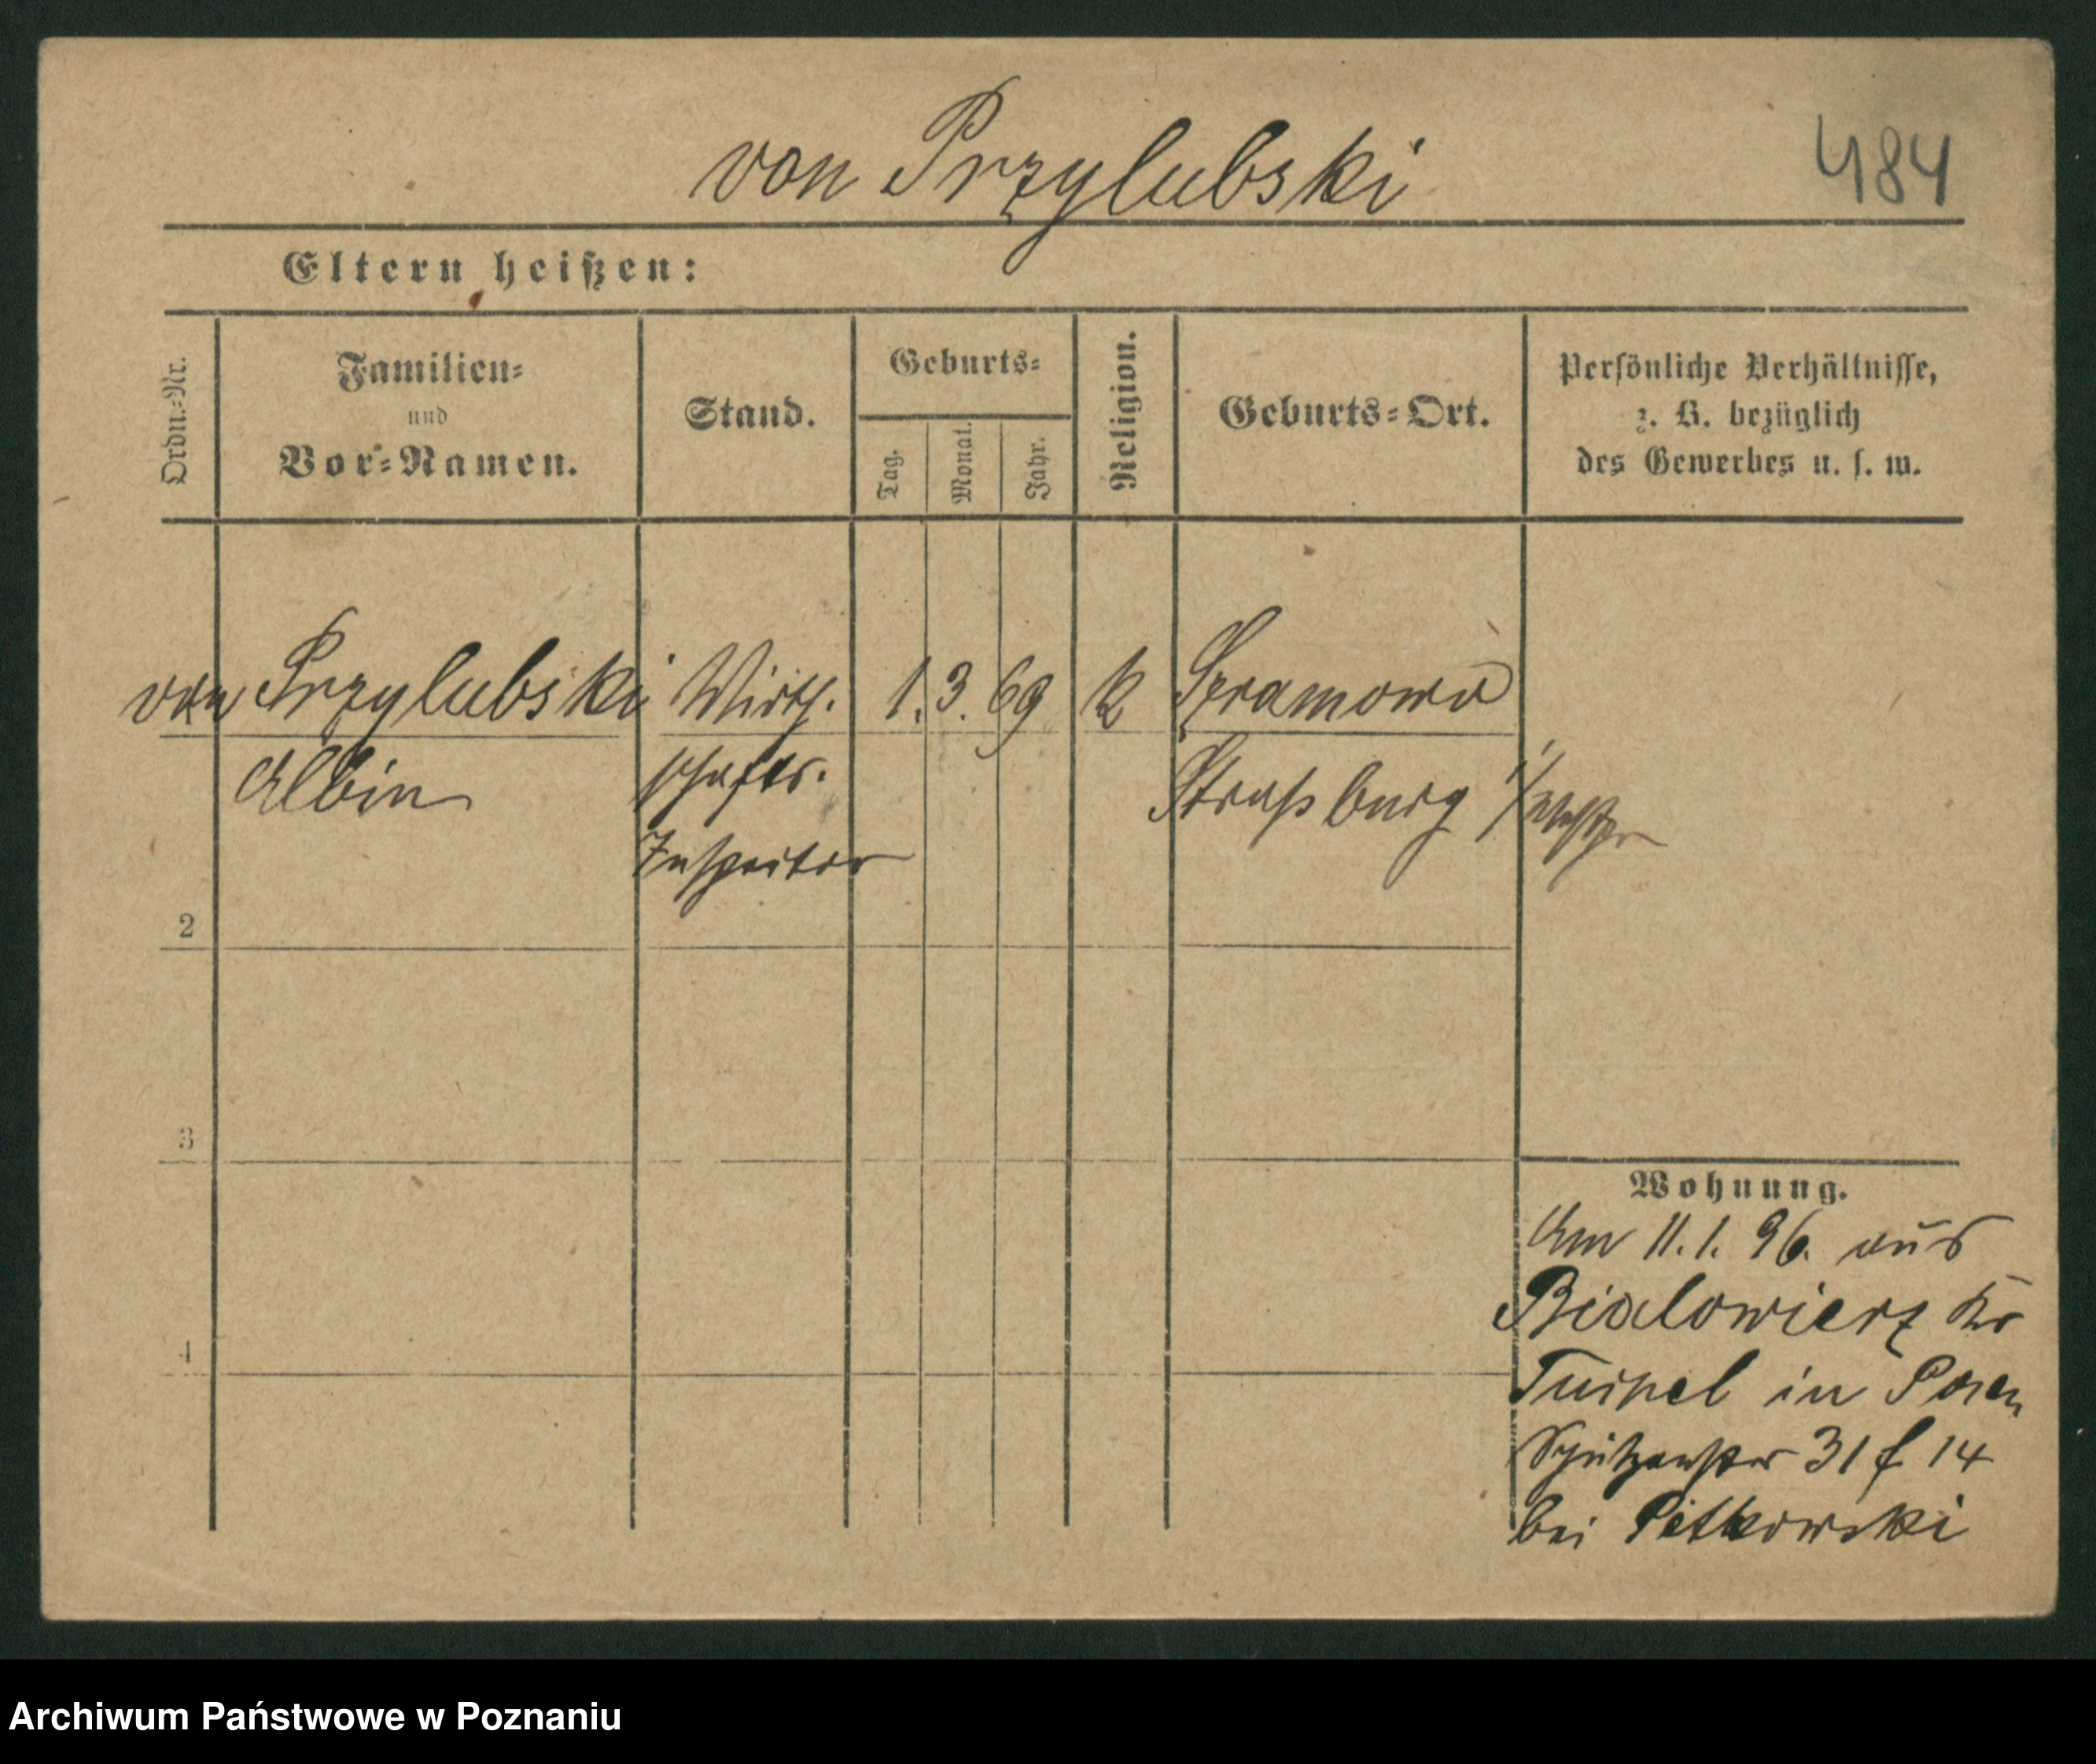 von Przylubski
484
Eltern heißen:
Ordn.-Nr.
Familien-
und
Vor-Namen.
Stand.
Geburts-
Tag.
Monat.
Jahr.
Religion.
Geburts-Ort.
Persönliche Verhältnisse,
z. B. bezüglich
des Gewerbes u. s. w.
von Przylubski Wirth. 1. 3. 69 k Szramowo
Albin schafts. Straßburg i/Westpr
Inspector
2
3
4
Wohnung.
Am 11.1.96. aus
Bialowierz Kr
Tuchel in Posen
Schützenstr 31 f 14
bei Petkowski
Archiwum Państwowe w Poznaniu